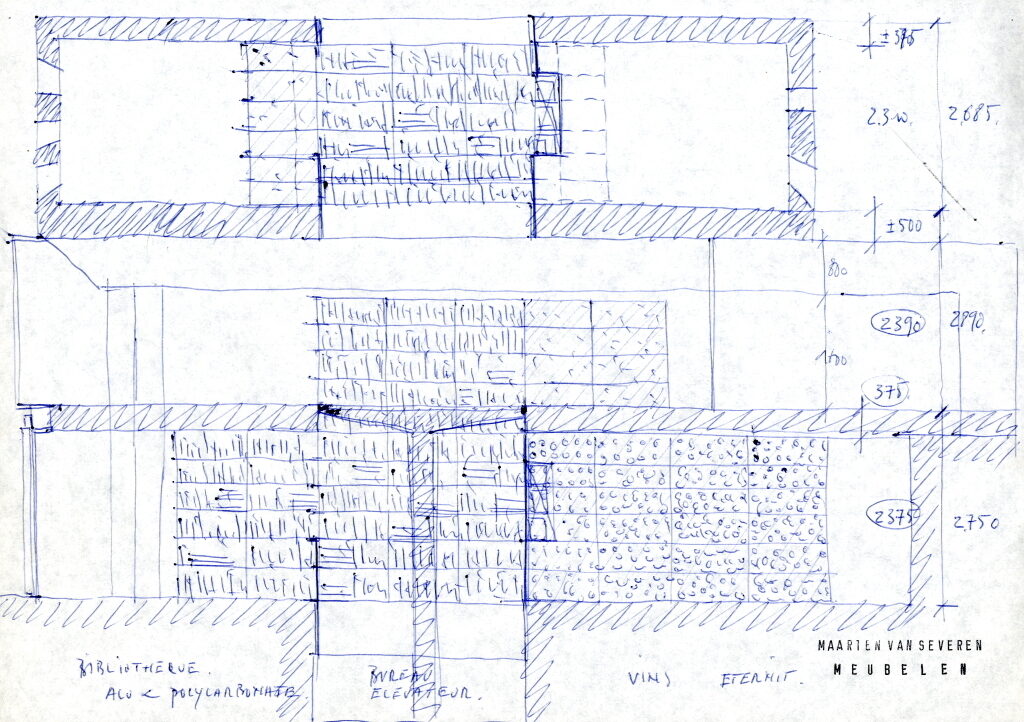 ±375
2685.
±500
800
2390
2890.
375
2375
2750
BIBLIOTHEQUE.
ALU & POLYCARBONATE.
BUREAU
ELEVATEUR.
VINS ETERNIT.
MAARTEN VAN SEVEREN
MEUBELEN